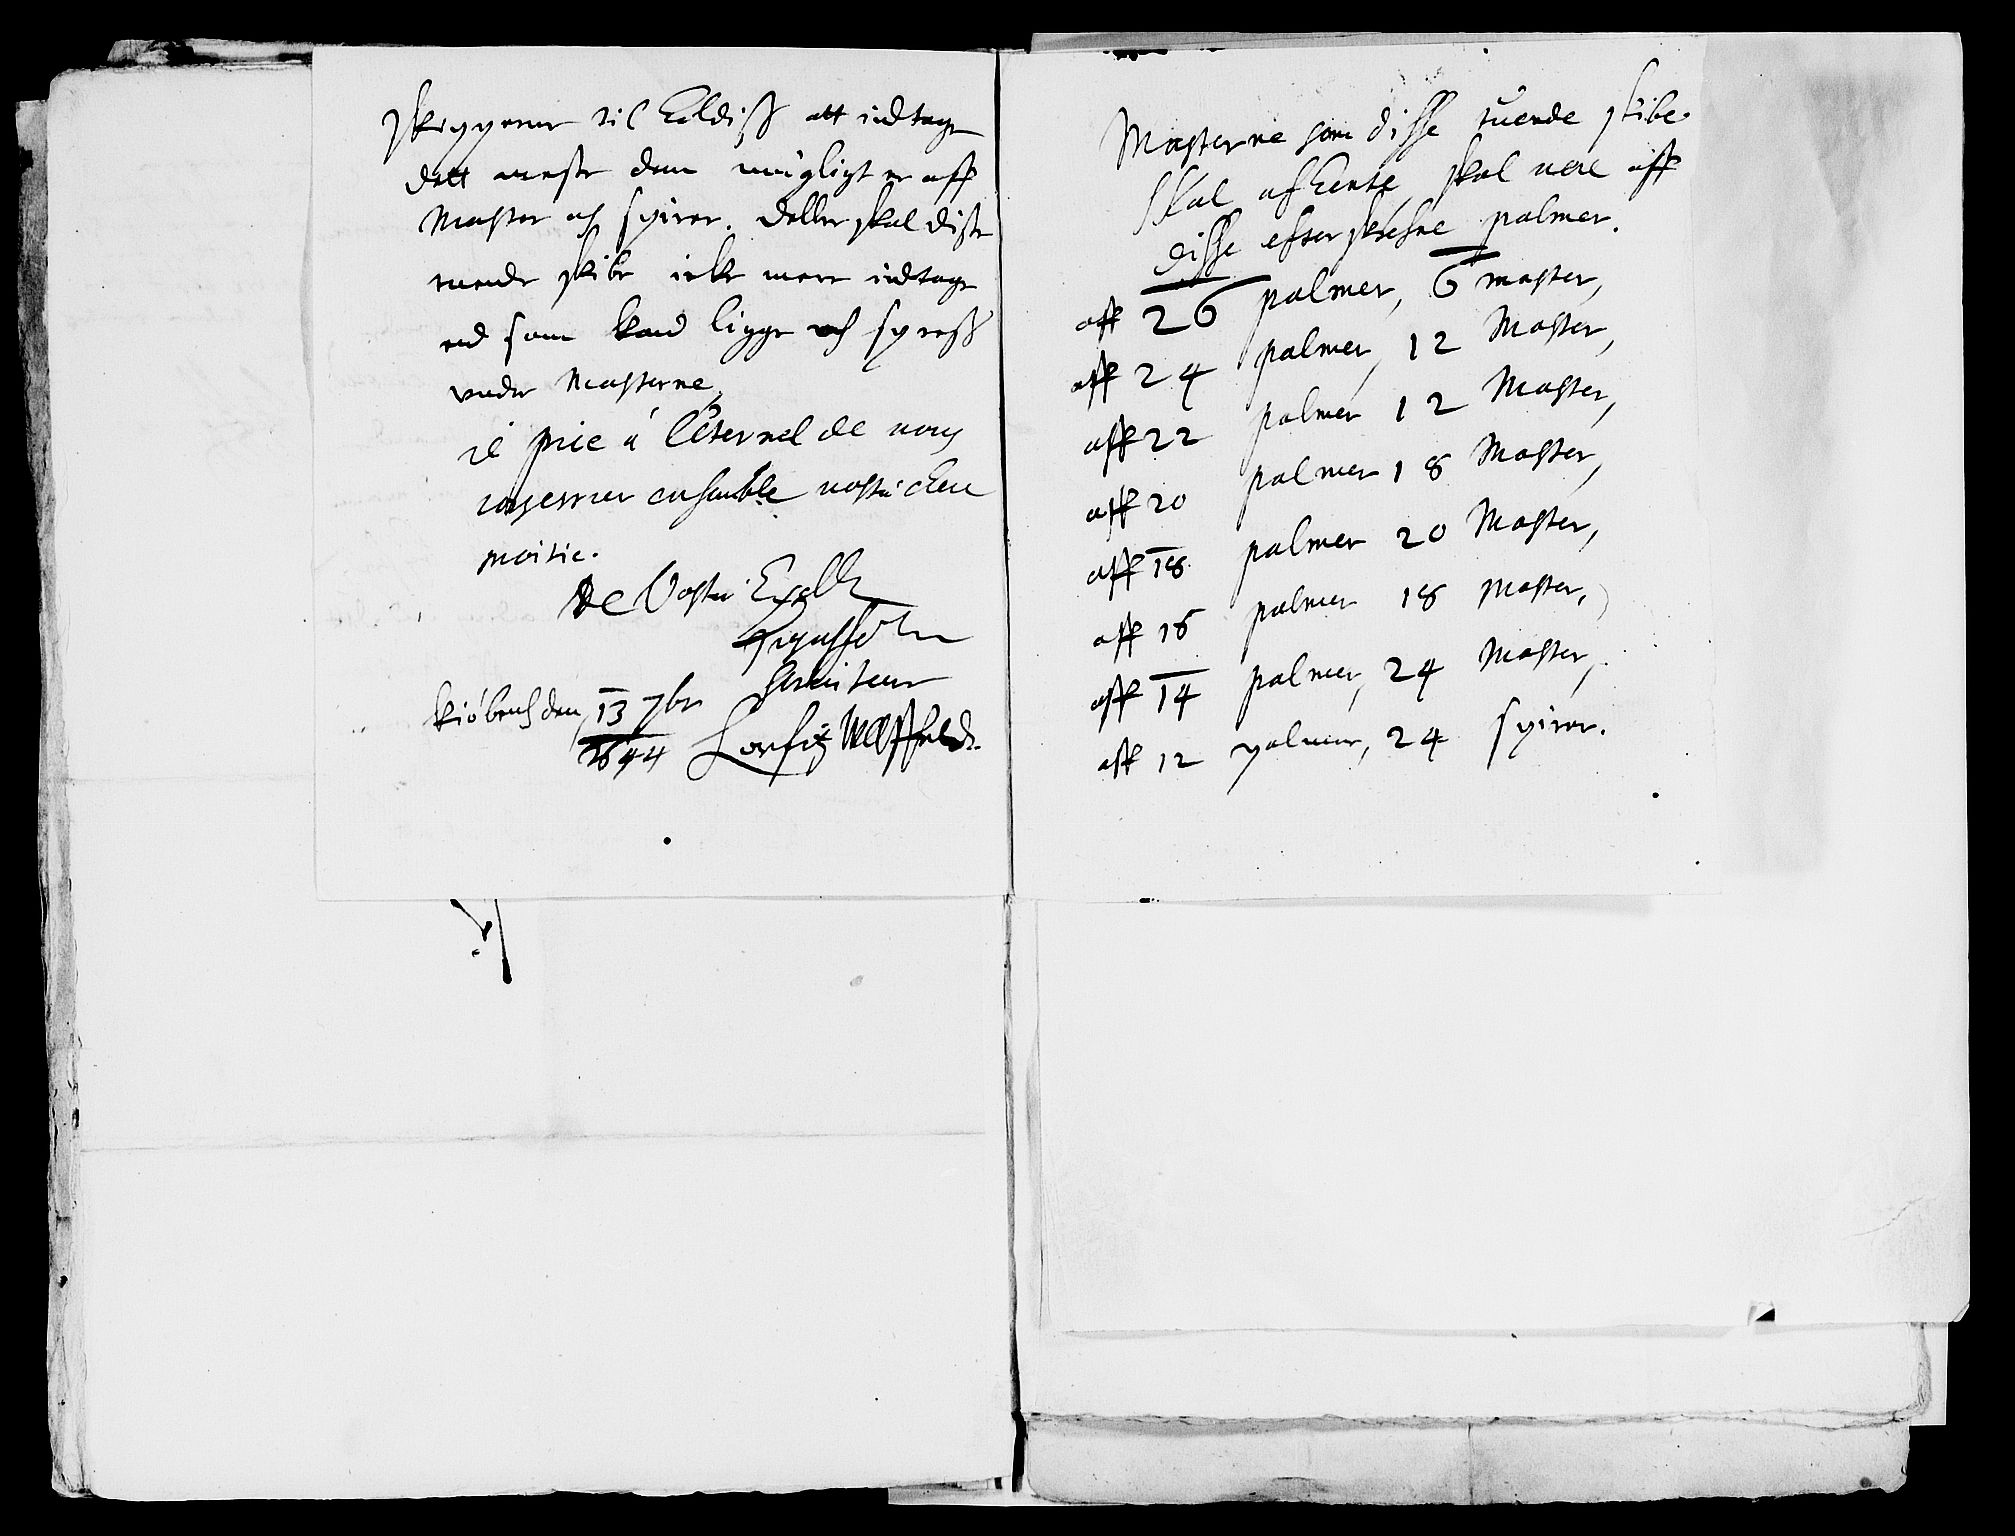 skipperne til Eeldiss att indtage
dett meste dem mügligt er aff
Master och spirer. Deller skal disse
tuende skibe icke mere indtage
end som kand ligge och spress
vnder Masterne,
ie prie á l'éternel de nous
conserver ensemble nostre chere
moitie.
De Vostre Excell:
tresaffectionné
serviteur
kiöbenh den 13 7br
1644 Corfitz Ulffeldt.
Masterne som disse tuende skibe
skal afhente, skal uere aff
disse efterskrefne palmer.
aff 26 palmer, 6 master,
aff 24 palmer, 12 Master,
aff 22 palmer 12 Master,
aff 20 palmer 18 Master,
aff 18 palmer 20 Master,
aff 16 palmer 18 Master,
aff 14 palmer, 24 Master,
aff 12 palmer, 24 spirer.